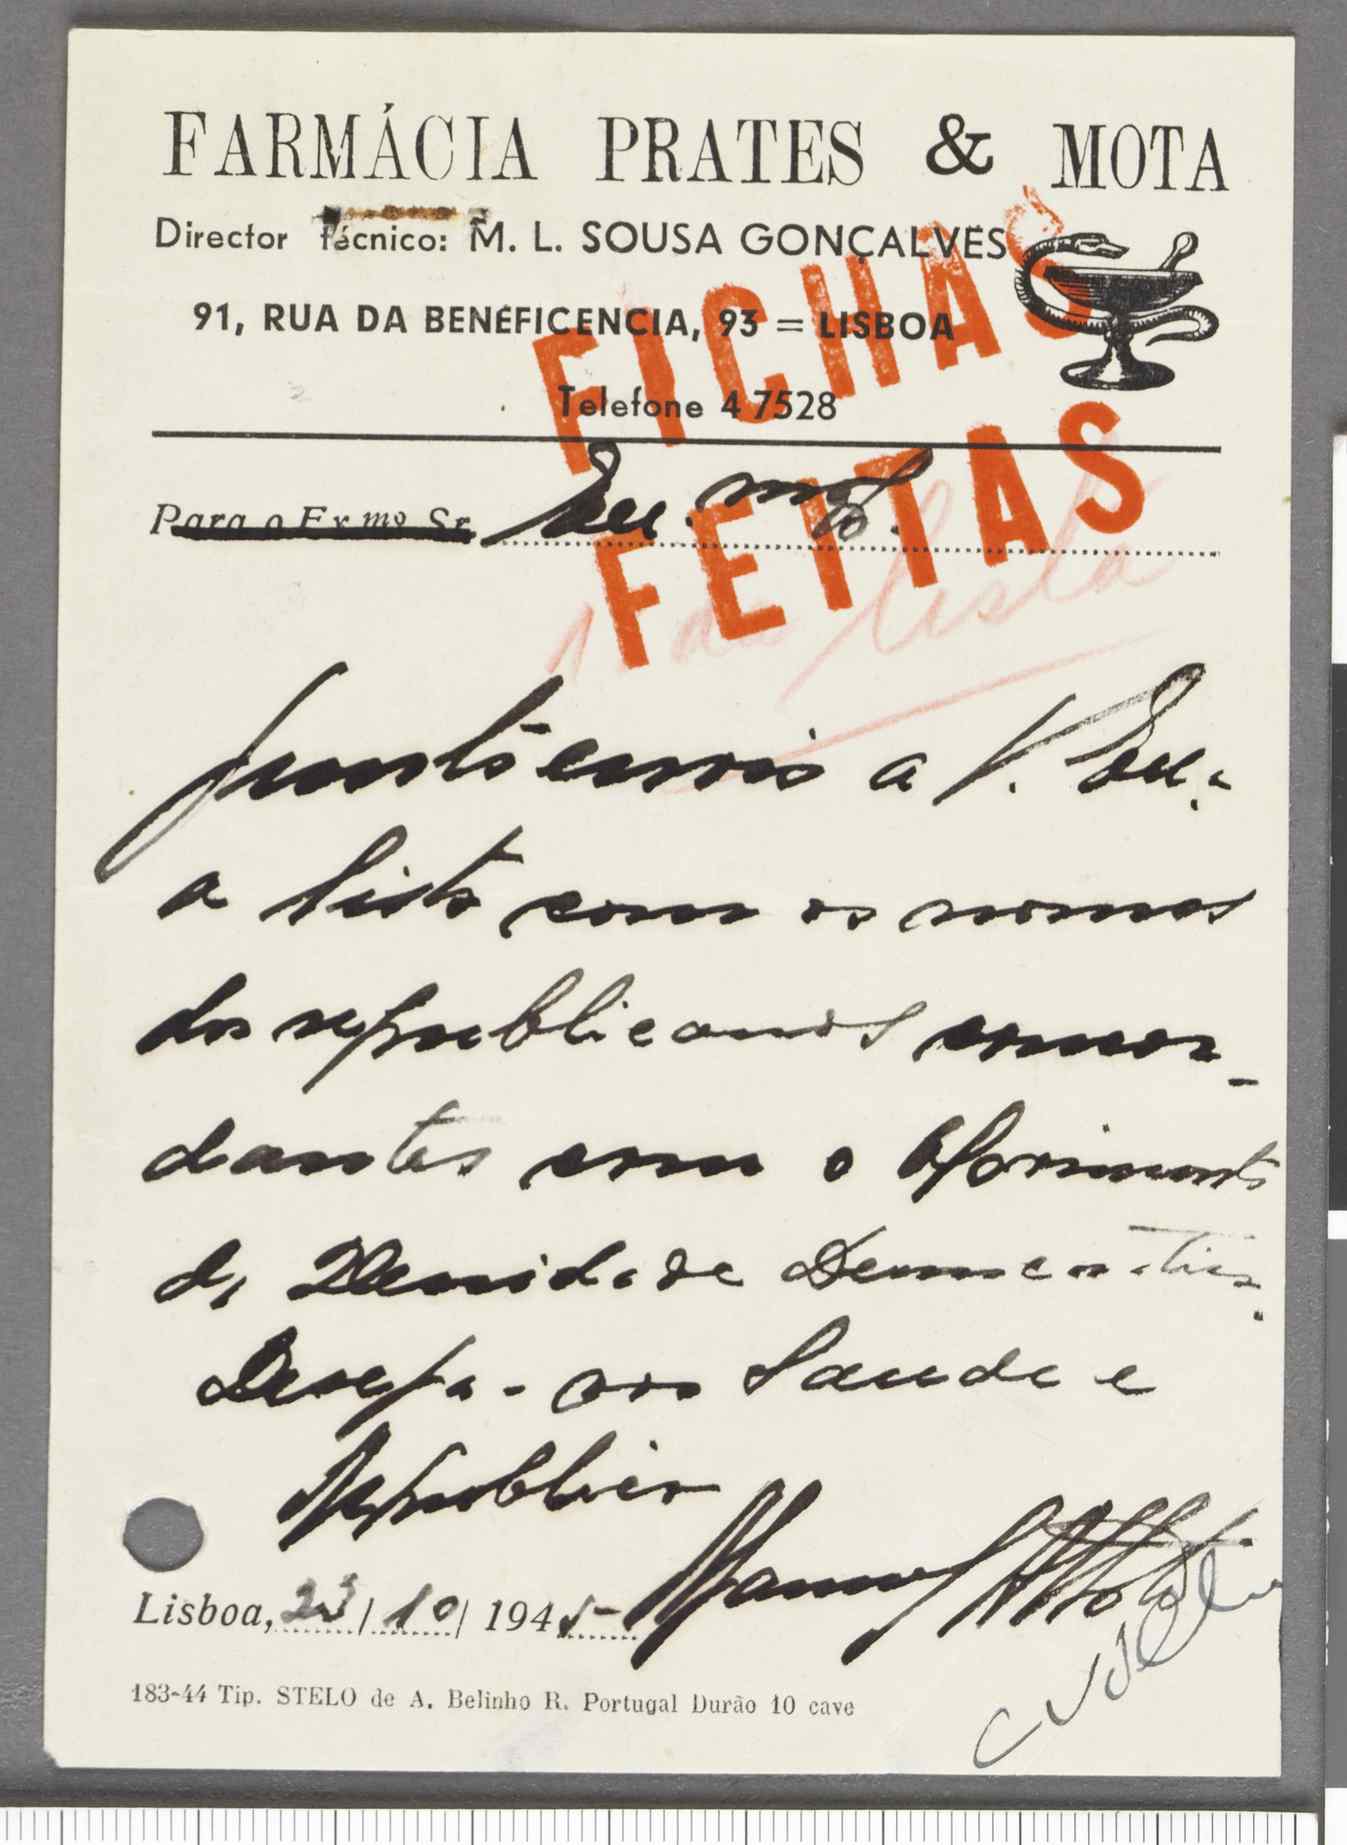 FARMÁCIA PRATES & MOTA
Director técnico: M. L. SOUSA GONÇALVES
91, RUA DA BENEFICENCIA, 93 = LISBOA
Telefone 47528
FICHAS
FEITAS
Para o Ex.mo Sr.
1 de lista
Junto envio a V. Exc.a
a lista com os nomes
dos republicanos concor-
dantes com o Movimento
de Unidade Democratica.
Deseja-vos Saude e
Republica
Manuel Mota
Lisboa, 23/10/1945
183-44 Tip. STELO de A. Belinho R. Portugal Durão 10 cave